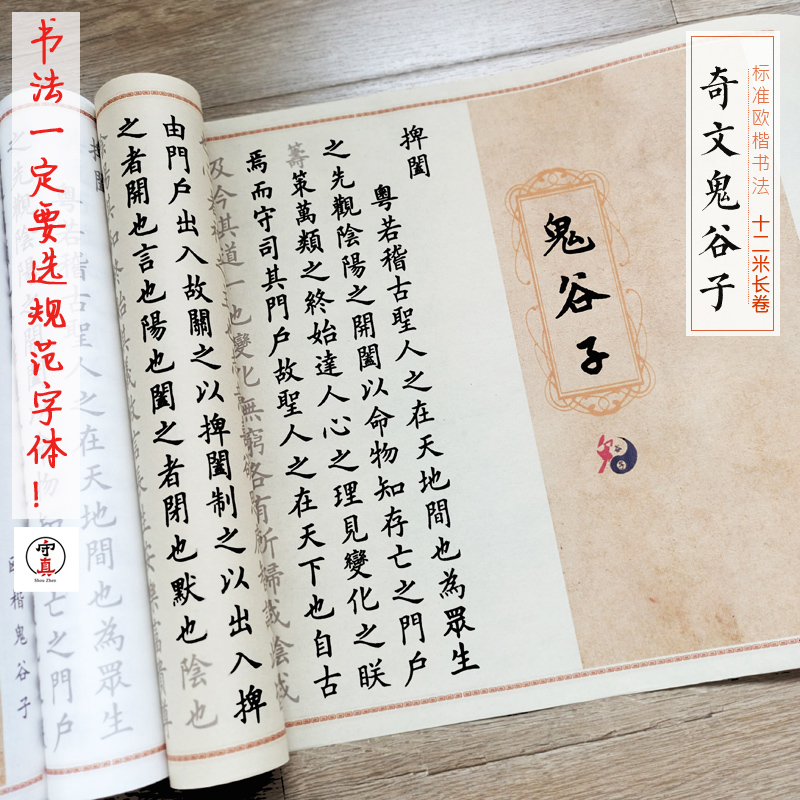 书法一定要选规范字体！
守真
Shou Zhen
奇文鬼谷子
标准欧楷书法 十二米长卷
鬼谷子
捭闔
粵若稽古聖人之在天地間也為眾生
之先觀陰陽之開闔以命物知存亡之門戶
籌策萬類之終始達人心之理見變化之眹
焉而守司其門戶故聖人之在天下也自古
及今其道一也變化無窮各有所歸或陰或
由門戶出入故關之以捭闔制之以出入捭
之者開也言也陽也闔之者閉也默也陰也
捭闔
粵若稽古聖人之在天地間也為眾生
之先觀陰陽
亡之門戶
楷鬼谷子